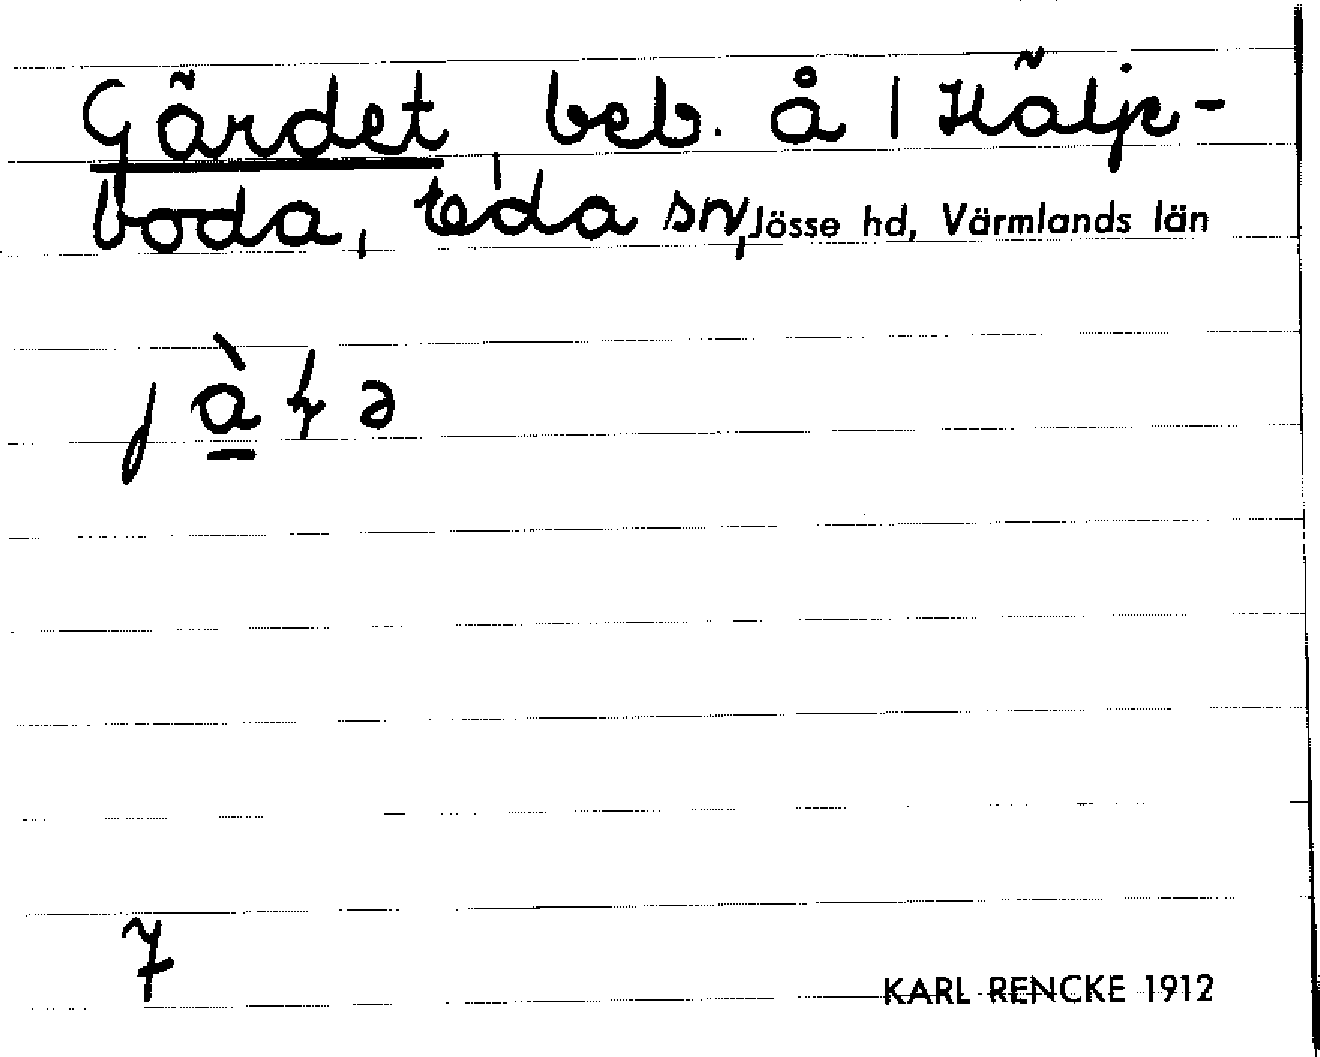 Gärdet beb. å 1 Hälje-
boda, Eda sn, Jösse hd, Värmlands län
7
KARL RENCKE 1912